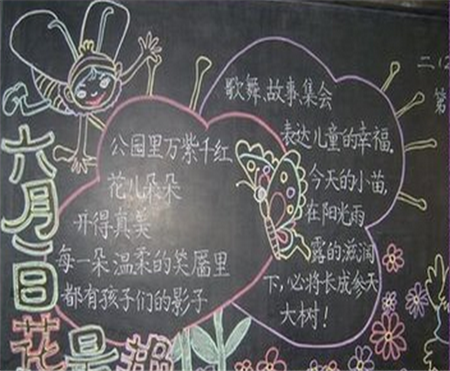 六月一日
花最艳
公园里万紫千红
花儿朵朵
开得真美
每一朵温柔的笑靥里
都有孩子们的影子
歌舞、故事、集会
表达儿童的幸福.
今天的小苗,
在阳光雨
露的滋润
下,必将长成参天
大树!
二(2
第